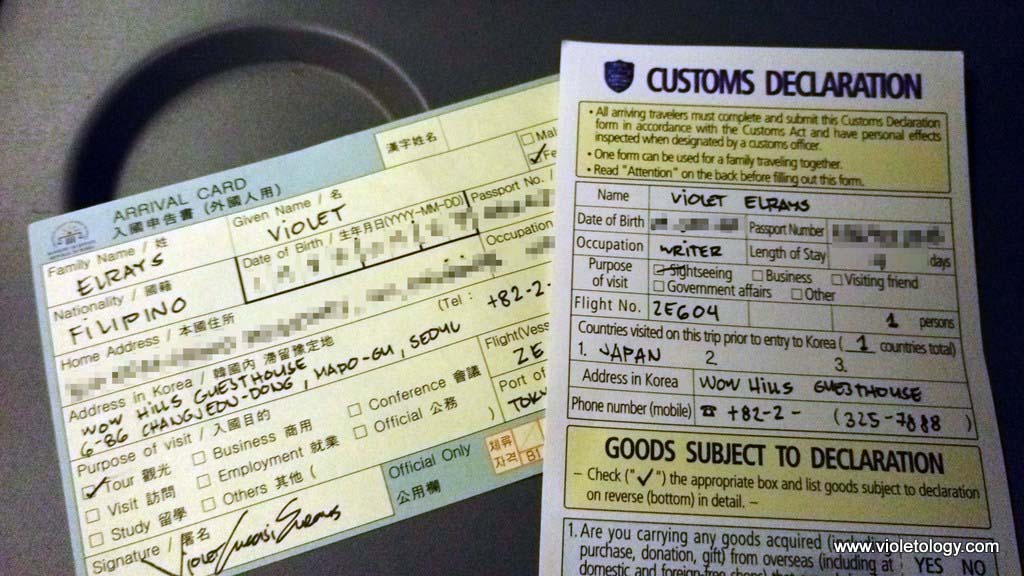 ARRIVAL CARD
入國申告書 (外國人用)
漢字姓名
Family Name / 姓
ELRAYS
Given Name / 名
VIOLET
Nationality / 國籍
FILIPINO
Date of Birth / 生年月日(YYYY-MM-DD)
Passport No. /
Occupation
Home Address / 本國住所
(Tel :
+82-2-
Address in Korea / 韓國內 滯留豫定地
WOW HILLS GUESTHOUSE
6-86 CHANGJEON-DONG, MAPO-GU, SEOUL
Purpose of visit / 入國目的
Tour 觀光
Business 商用
Conference 會議
Visit 訪問
Employment 就業
Official 公務
Study 留學
Others 其他 (
)
Port of
Signature / 署名
Official Only
公用欄
체류
자격
CUSTOMS DECLARATION
• All arriving travelers must complete and submit this Customs Declaration
form in accordance with the Customs Act and have personal effects
inspected when designated by a customs officer.
• One form can be used for a family traveling together.
• Read "Attention" on the back before filling out this form.
Name VIOLET ELRAYS
Date of Birth Passport Number
Occupation WRITER Length of Stay days
Purpose of visit
Sightseeing Business Visiting friend
Government affairs Other
Flight No. ZE604 1 persons
Countries visited on this trip prior to entry to Korea ( 1 countries total)
1. JAPAN 2. 3.
Address in Korea WOW HILLS GUESTHOUSE
Phone number (mobile) ☎ +82-2- (325-7888 )
GOODS SUBJECT TO DECLARATION
– Check ("✓") the appropriate box and list goods subject to declaration
on reverse (bottom) in detail. –
1. Are you carrying any goods acquired (including
purchase, donation, gift) from overseas (including at
domestic and foreign
YES NO
www.violetology.com